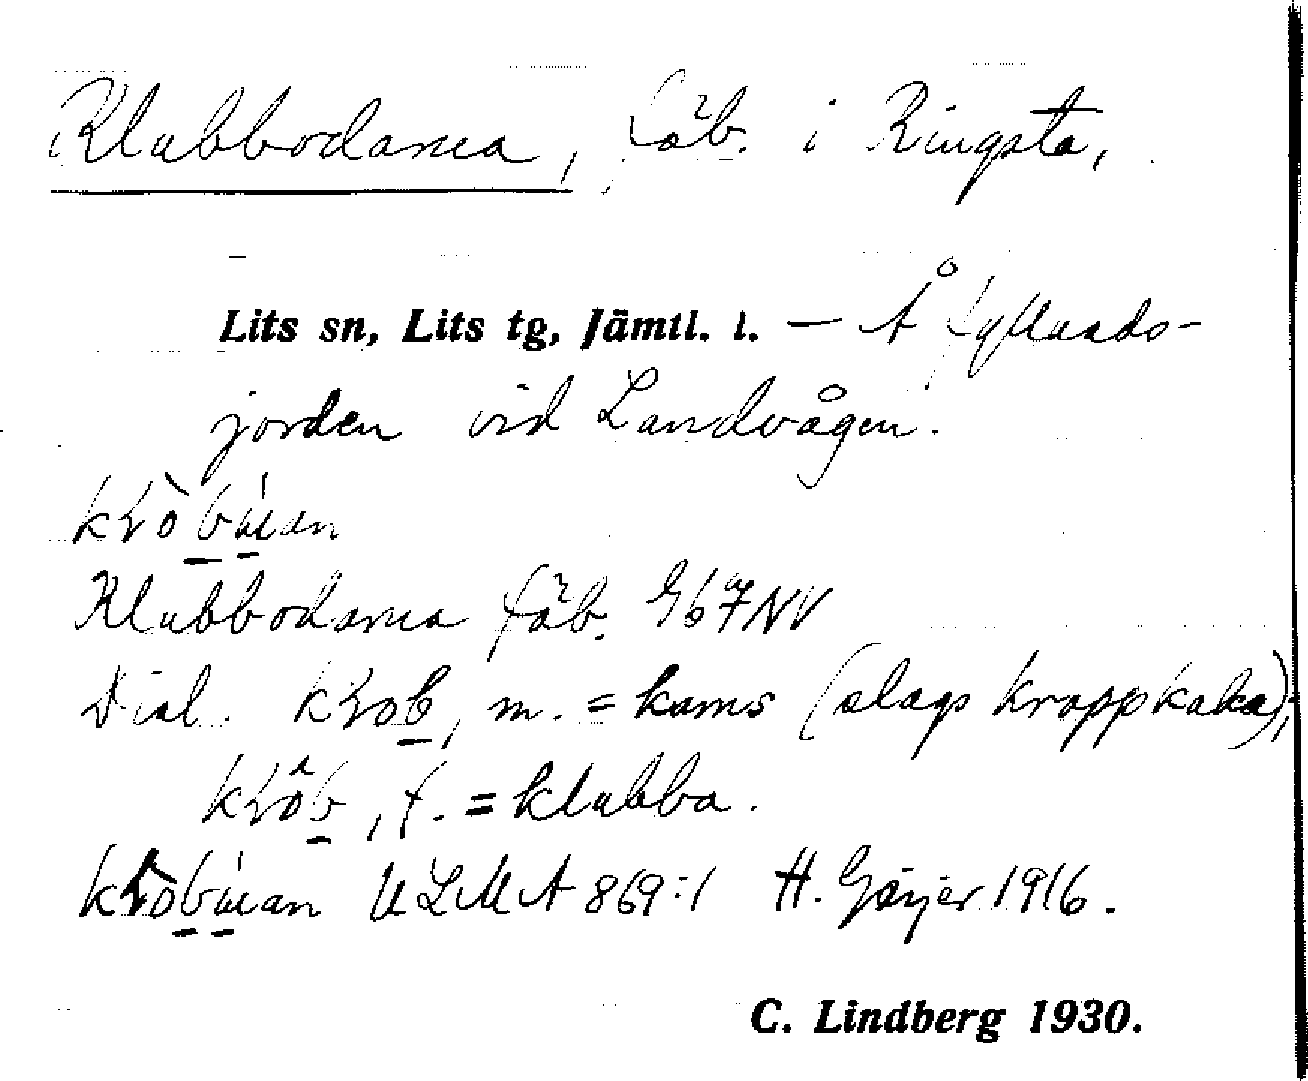 Klubbodarna, fäb. i Ringsta,
Lits sn, Lits tg, Jämtl. l. — Å fyllnads-
jorden vid Landvågen.
Klubbodarna fäb. Gb 7 NV
Dial. m. = kams (slags kroppkaka);
f. = klubba.
ULMA 869:1 H. Geijer 1916.
C. Lindberg 1930.